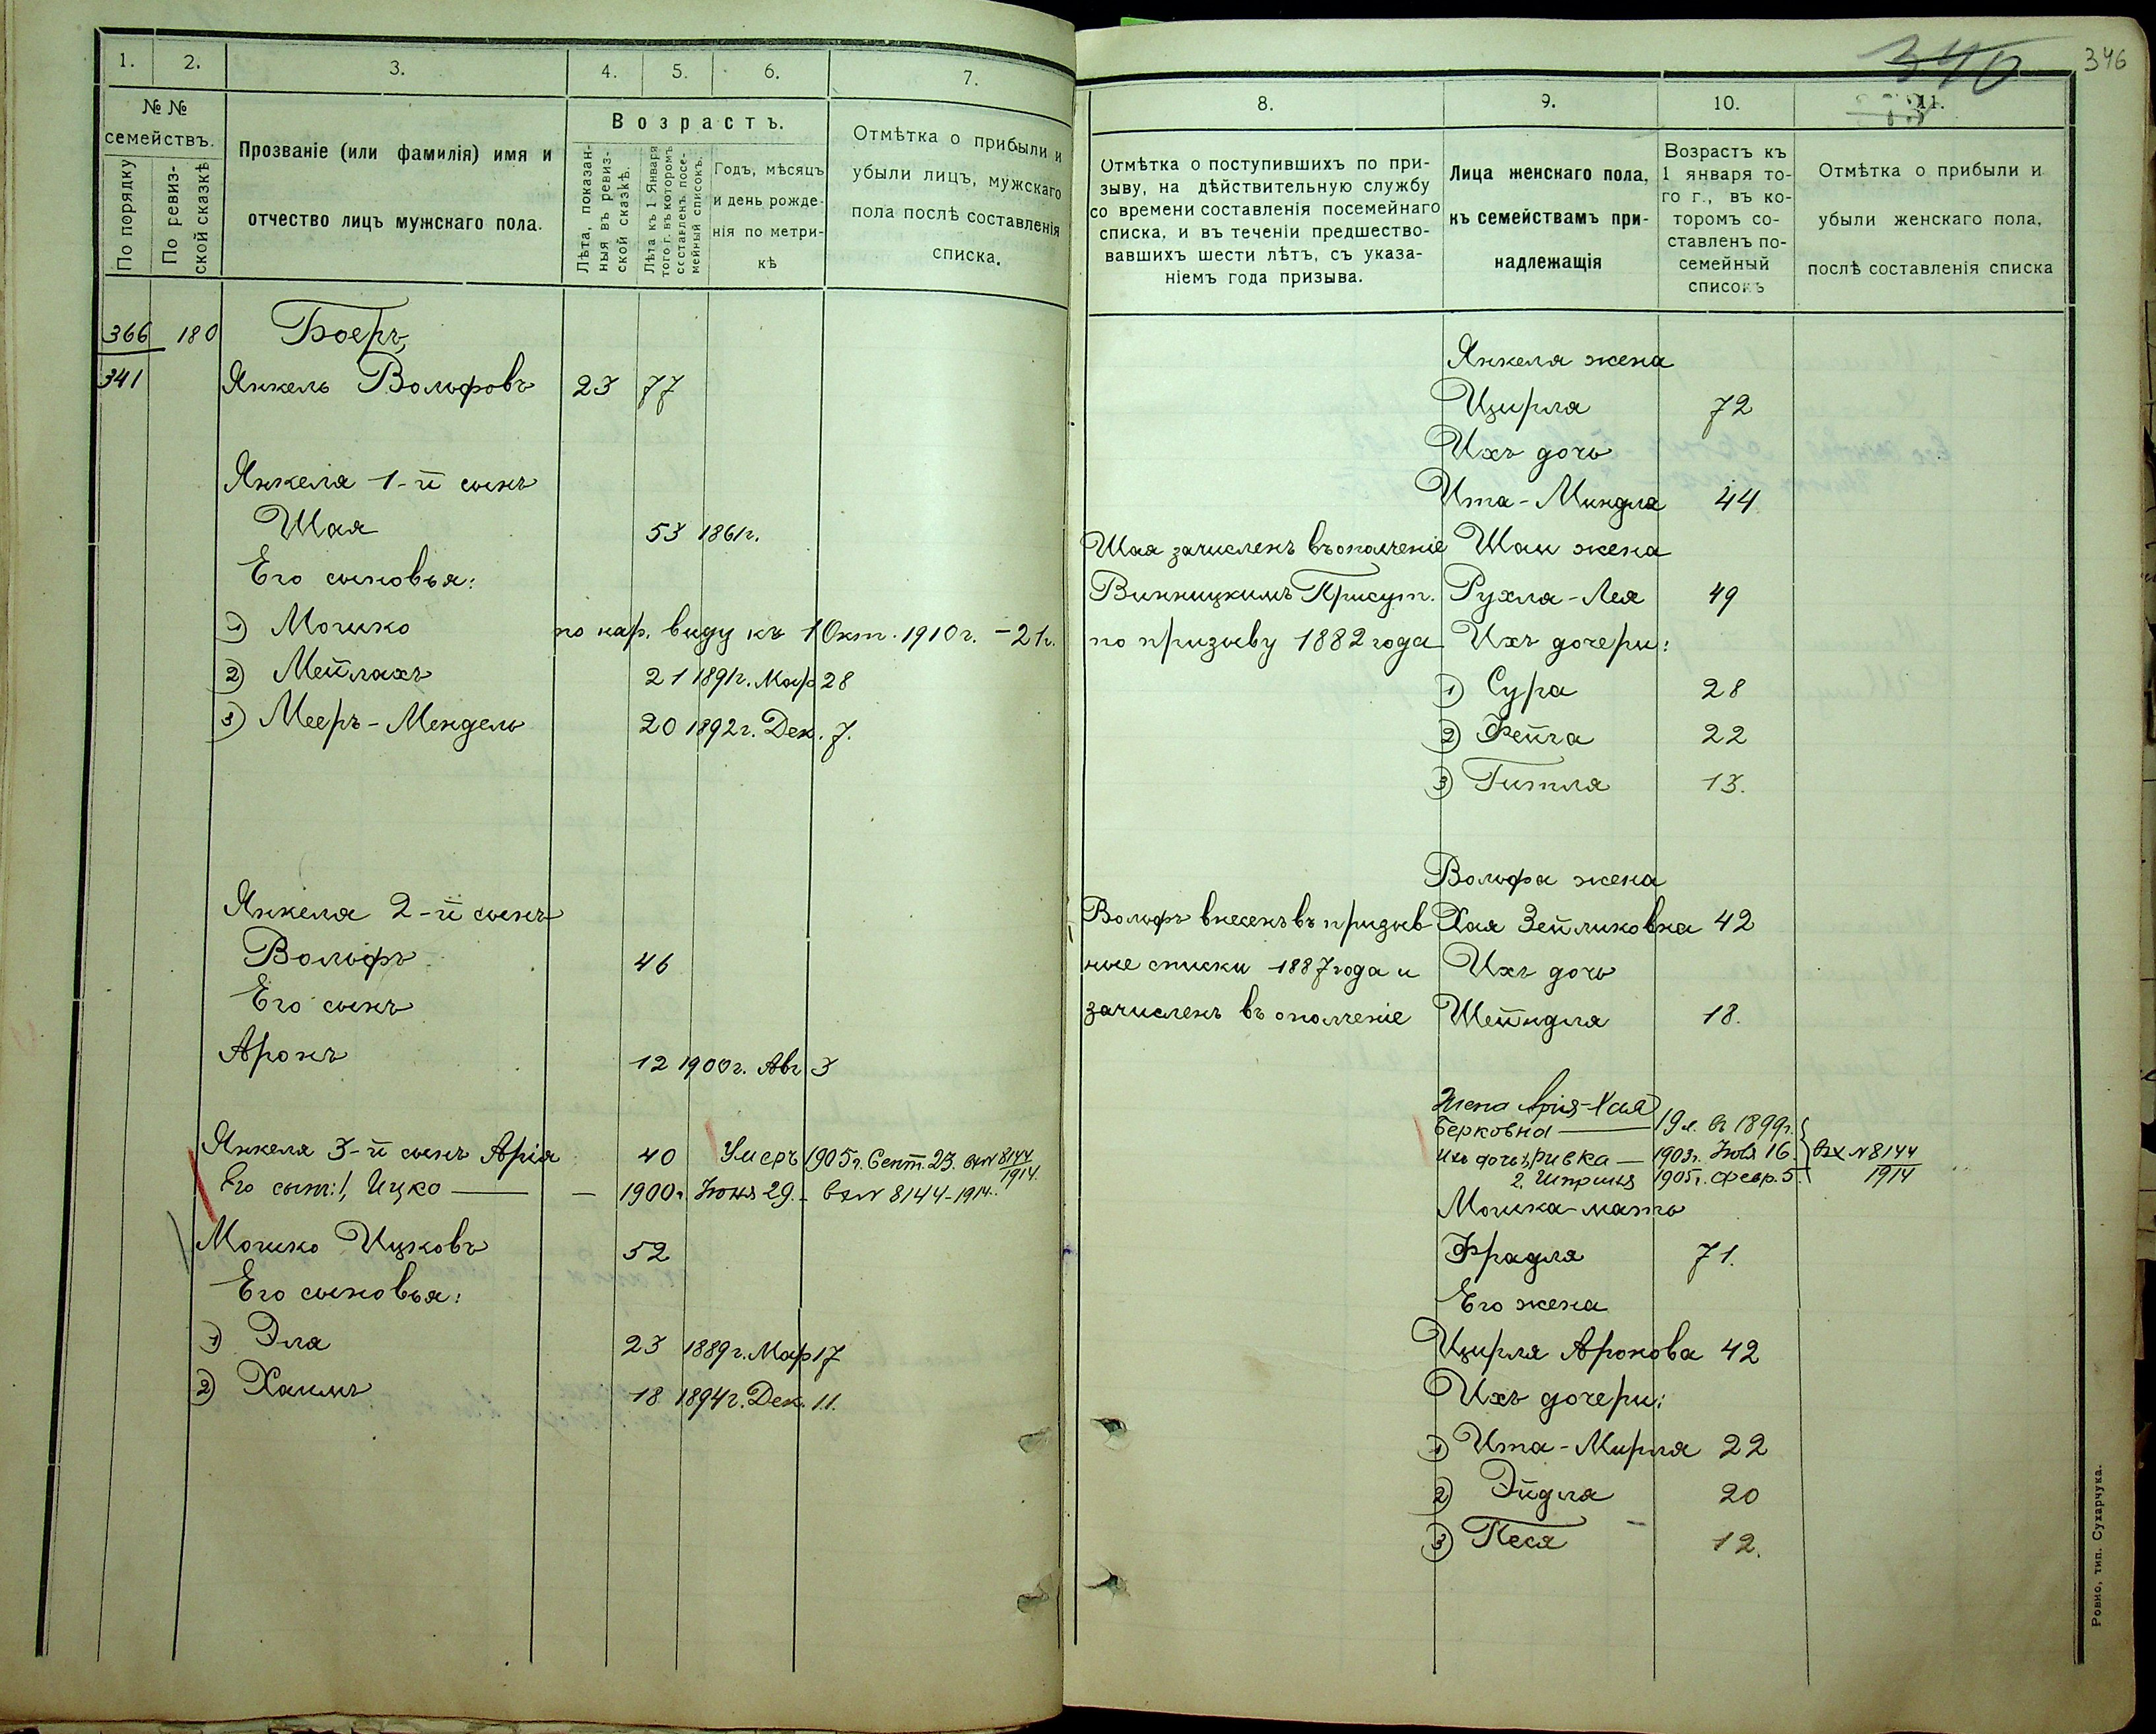 1. 2. 3. 4. 5. 6. 7.
№ №
семействъ.
По порядку
По ревиз-
ской сказкѣ
Прозваніе (или фамилія) имя и
отчество лицъ мужскаго пола.
Возрастъ.
Лѣта, показан-
ныя въ ревиз-
ской сказкѣ.
Лѣта къ 1 Января
того г. въ которомъ
составленъ посе-
мейный списокъ.
Годъ, мѣсяцъ
и день рожде-
нія по метри-
кѣ
Отмѣтка о прибыли и
убыли лицъ, мужскаго
пола послѣ составленія
списка.
366 180 Боеръ
341 Янкель Вольфовъ 23 77
Янкеля 1-й сынъ
Шая 53 1861г.
Его сыновья:
1) Мошко по нар. виду къ 1 Окт. 1910г. - 21г.
2) Мейлахъ 21 1891г. Мар 28
3) Мееръ-Мендель 20 1892г. Дек. 7.
Янкеля 2-й сынъ
Вольфъ 46
Его сынъ
Аронъ 12 1900г. Авг 3
Янкеля 3-й сынъ Арія 40 Умеръ 1905г. Сент. 23. вх№ 8144
1914.
Его сынъ: 1, Ицко — — 1900г. Іюня 29. - вх№ 8144-1914.
Мошко Ицковъ 52
Его сыновья:
1) Эла 23 1889г. Мар 17
2) Хаимъ 18 1894г. Дек. 11.
340
346
8. 9. 10. 11.
Отмѣтка о поступившихъ по при-
зыву, на дѣйствительную службу
со времени составленія посемейнаго
списка, и въ теченіи предшество-
вавшихъ шести лѣтъ, съ указа-
ніемъ года призыва.
Лица женскаго пола,
къ семействамъ при-
надлежащія
Возрастъ къ
1 января то-
го г., въ ко-
торомъ со-
ставленъ по-
семейный
списокъ
Отмѣтка о прибыли и
убыли женскаго пола,
послѣ составленія списка
Янкеля жена
Цирля 72
Ихъ дочь
Ита-Миндля 44
Шая зачисленъ въ ополченіе Шаи жена
Винницкимъ Присут. Рухля-Лея 49
по призыву 1882 года Ихъ дочери:
1) Сура 28
2) Фейга 22
3) Гитля 13.
Вольфа жена
Вольфъ внесенъ въ призыв Хая Зейликовна 42
ные списки 1887 года и Ихъ дочь
зачисленъ въ ополченіе Шейндля 18.
Жена Арія-Хая
Берковна — 19 л. въ 1899г.
Ихъ дочь: 1, Ривка — 1903г. Іюля 16. вх №8144
2. Шпринця 1905г. февр. 5. 1914
Мошка-мать
Фрадля 71.
Его жена
Цирля Аронова 42
Ихъ дочери:
1) Ита-Мирля 22
2) Эйдля 20
3) Песя 12.
Ровно, тип. Сухарчука.